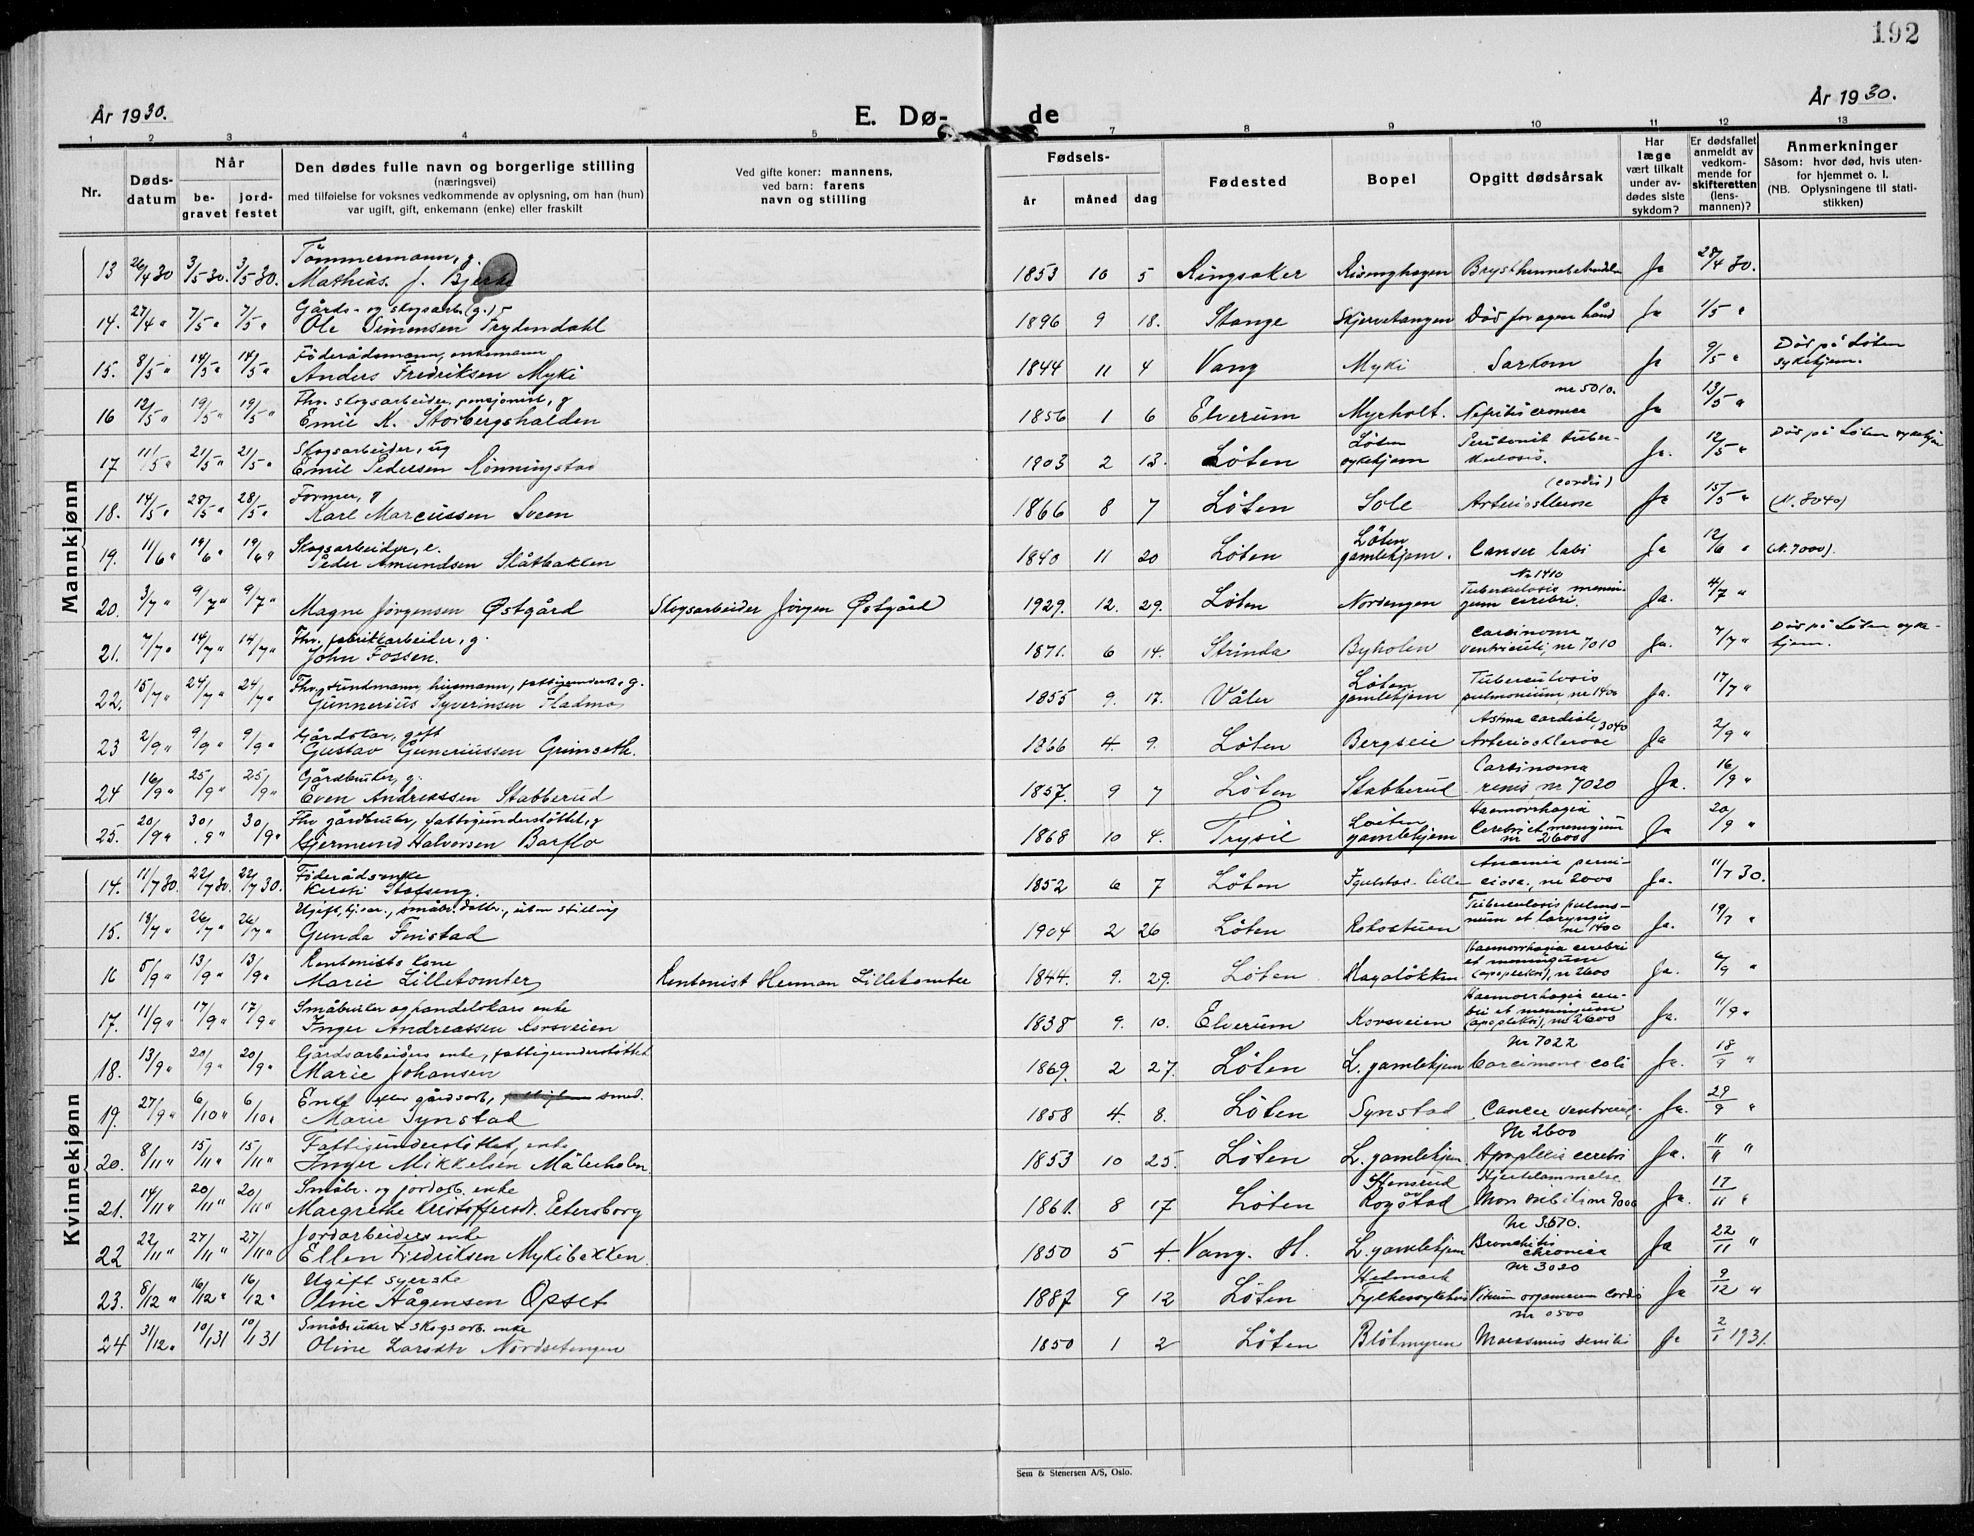 192
År 1930.
E. Dø- de
År 1930.
1 2 3 4 5 7 8 9 10 11 12 13
Nr.
Døds-
datum
Når
be-
gravet
jord-
festet
Den dødes fulle navn og borgerlige stilling
(næringsvei)
med tilføielse for voksnes vedkommende av oplysning, om han (hun)
var ugift, gift, enkemann (enke) eller fraskilt
Ved gifte koner: mannens,
ved barn: farens
navn og stilling
Fødsels-
år måned dag
Fødested
Bopel
Opgitt dødsårsak
Har
læge
vært tilkalt
under av-
dødes siste
sykdom?
Er dødsfallet
anmeldt av
vedkom-
mende for
skifteretten
(lens-
mannen)?
Anmerkninger
Såsom: hvor død, hvis uten-
for hjemmet o. l.
(NB. Oplysningene til stati-
stikken)
Mannkjønn
Tömmermann, g.
13 26/4 30 3/5 30. 3/5 30. Mathias J. Bjerke 1853 10 5 Ringsaker Risenghagen Ja 28/4 30.
Gårds- og skogsarb. (g.)
14. 27/4 " 7/5 " 7/5 " Ole Simensen Frydendahl 1896 9 18. Stange Skjervetangen Död for egen hånd Ja 1/5 "
Föderådsmann, enkemann
15. 8/5 " 14/5 " 14/5 " Anders Fredriksen Myki 1844 11 4 Vang Myki Sarkom Ja 9/5 " Död på Löten
sykehjem.
Fhv. skogsarbeider, pensjonist, g
nr 5010.
16 12/5 " 19/5 " 19/5 " Emil K. Storbergshalden 1856 1 6 Elverum Myrholt. Ja 13/5 "
Skogsarbeider, ug
17 11/5 " 21/5 " 21/5 " Emil Pedersen Rönningstad 1903 2 13. Löten Löten
sykehjem Peritonit tuber-
kulosis. Ja. 12/5 " Död på Löten sykehjem
Former, g
(cordis)
18. 14/5 " 28/5 " 28/5 " Karl Marcussen Sveen 1866 8 7 Löten Sole Arteriosklerose Ja 15/5 " (N. 3040)
Skogsarbeider, e.
19. 11/6 " 19/6 " 19/6 " Peder Amundsen Slåtbakken 1840 11 20 Löten Löten
gamlehjem. Canser labi Ja 12/6 " (N. 7000).
No 1410
20. 3/7 " 9/7 " 9/7 " Magne Jørgensen Østgård Skogsarbeider Jörgen Østgård 1929. 12. 29. Löten Nordengen Tuberkulosis menin-
gum cerebri. Ja. 4/7 "
Fhv. fabrikkarbeider, g.
21. 7/7 " 14/7 " 14/7 " John Fossen. 1871. 6 14. Strinda Byholen Carcinoma
ventriculi, nr 7010 Ja. 7/7 " Död på Löten syke-
hjem.
Fhv. husmann, fattigunderst. g.
22. 15/7 " 24/7 " 24/7 " Gunnerius Syverinsen Fladmo 1855 9. 17. Våler Löten
gamlehjem Tuberculosis
pulmonium, nr 1400 Ja. 17/7 "
Gårdskar, gift
23 2/9 " 9/9 " 9/9 " Gustav Guneriussen Grimseth. 1866 4. 9. Löten Bergseie Astma cardiale, 3040
Arteriosklerose Ja 2/9 "
Gårdbruker, g.
24 16/9 " 25/9 " 25/9 " Even Andreassen Stabberud 1857. 9 7 Löten Stabberud Carcinoma
renis, nr 7020 Ja. 16/9 "
Fhv gårdbruker, fattigunderstöttet, g
25. 20/9 " 30/9 " 30/9 " Gjermund Halvorsen Barflo 1868 10 4. Trysil Loiten
gamlehjem Haemorrhagia
Cerebri et meningum
nr 2600 Ja 20/9 "
Kvinnekjønn
Föderådsenke
14. 11/7 30. 22/7 30. 22/7 30. Kersti Stafseng. 1852 6 7 Löten lille Anamia perni-
ciosa, nr 2000 Ja. 11/7 30.
Ugift, småbr. datter, uten stilling
15. 18/7 " 26/7 " 26/7 " Gunda Finstad 1904 2 26 Löten Rokostuen Tuberculosis pulmo-
num et laryngis
nr 1400 Ja. 19/7 "
Rentenists kone
16 5/9 " 13/9 " 13/9 " Marie Lilletomter Rentenist Herman Lilletomter 1844. 9. 29. Löten Hagalökken Haemorrhagia cerebri
et meningum
(apoplekси), nr 2600 Ja. 6/9 "
Småbruker og handelskars enke
17. 11/9 " 17/9 " 17/9 " Inger Andreassen Korsveien 1838 9. 10. Elverum Korsveien Haemorrhagia cere-
bri et meningum
(apopleksi), nr 2600 Ja. 11/9 "
Gårdsarbeiders enke, fattigunderstöttet
Nr 7022
18. 13/9 " 20/9 " 20/9 " Marie Johansen 1869. 2 27. Löten L. gamlehjem Carcinoma coli Ja. 18/9 "
Enke efter gårdsarb, smed.
19. 27/9 " 6/10 " 6/10 " Marie Synstad 1858 4. 8. Löten Synstad Cancer ventriculi Ja. 29/9 "
Fattigunderstöttet, enke
Nr 2600
20. 8/11 " 15/11 " 15/11 " Inger Mikkelsen Målerholen 1853 10 25. Löten L. gamlehjem Apoplexia cerebri Ja. 11/11 "
Småbr. og jordarb. enke
21. 14/11 " 20/11 " 20/11 " Margrethe Kristoffersdt. Petersborg 1861. 8 17 Löten Stensrud
av
Rogstad Hjertelammelse
Mors subiti nr 9000 Ja. 17/11 "
Jordarbeiders enke
Nr 3670.
22 22/11 " 27/11 " 27/11 " Ellen Fredriksen Mykibakken. 1850 5 4 Vang. H. L. gamlehjem Bronchitis
chronica Ja 22/11 "
Ugift syerske
Nr 3020
23. 8/12 " 16/12 " 16/12 " Oline Hågensen Opset 1887 9 12 Löten Hedmark
Fylkessykehus Vitium organicum cordis Ja 9/12 "
Småbruker & skogsarb. enke
Nr 0500
24 31/12 " 10/1 31 10/1 31 Oline Larsdtr Nordsetengen 1850 1 2 Löten Blötmyren Marasmus senilis Ja 2/1 1931.
Sem & Stenersen A/S, Oslo.